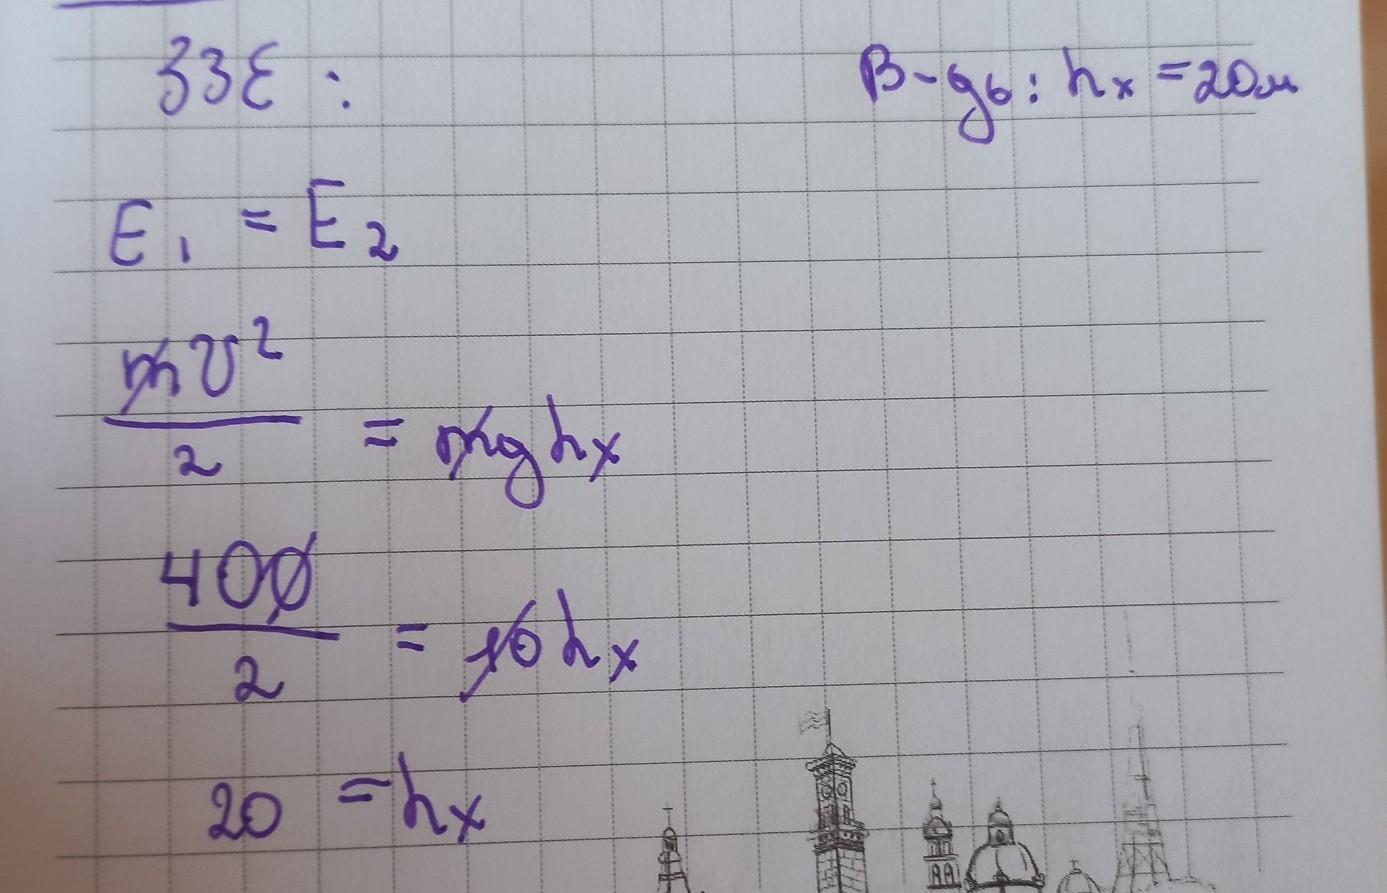 ЗЗЕ :
В-дь: hₓ = 20м
E₁ = E₂
mv²/2 = mghₓ
400/2 = 10hₓ
20 = hₓ